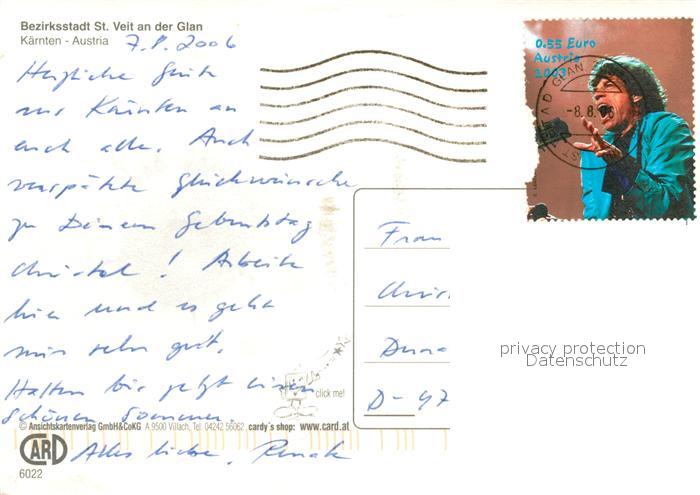 Bezirksstadt St. Veit an der Glan
Kärnten - Austria
7.8.2006
Herzliche Grüße
aus Kärnten an
euch alle. Auch
verspätete Glückwünsche
zu Deinem Geburtstag
Christel! Arbeite
hier und es geht
mir sehr gut.
Hatten bis jetzt einen
schönen Sommer.
Alles Liebe, Renate
0.55 Euro
Austria
2003
-8.8.06
Frau
D-47
privacy protection
Datenschutz
click me!
© Ansichtskartenverlag GmbH&CoKG A 9500 Villach, Tel. 04242 56062 cardy's shop: www.card.at
CARD
6022